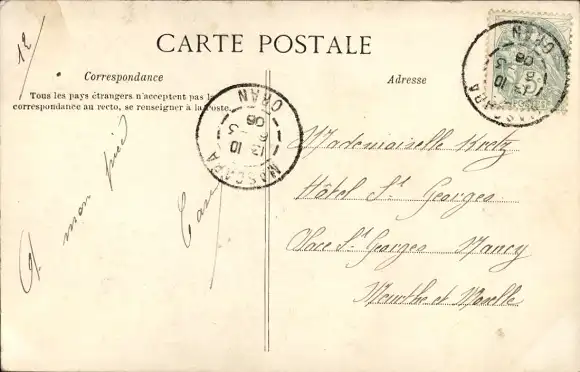 12
CARTE POSTALE
Correspondance
Adresse
Tous les pays étrangers n'acceptent pas la
correspondance au recto, se renseigner à la Poste.
MASCARA
13 10
6 -5
06
ORAN
MASCARA
13 10
6 -5
06
ORAN
Mademoiselle Kretz
Hôtel St Georges
Place St Georges Nancy
Meurthe et Moselle
mon